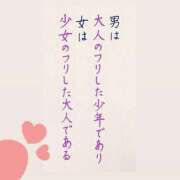 男は
大人のフリした少年であり
女は
少女のフリした大人である